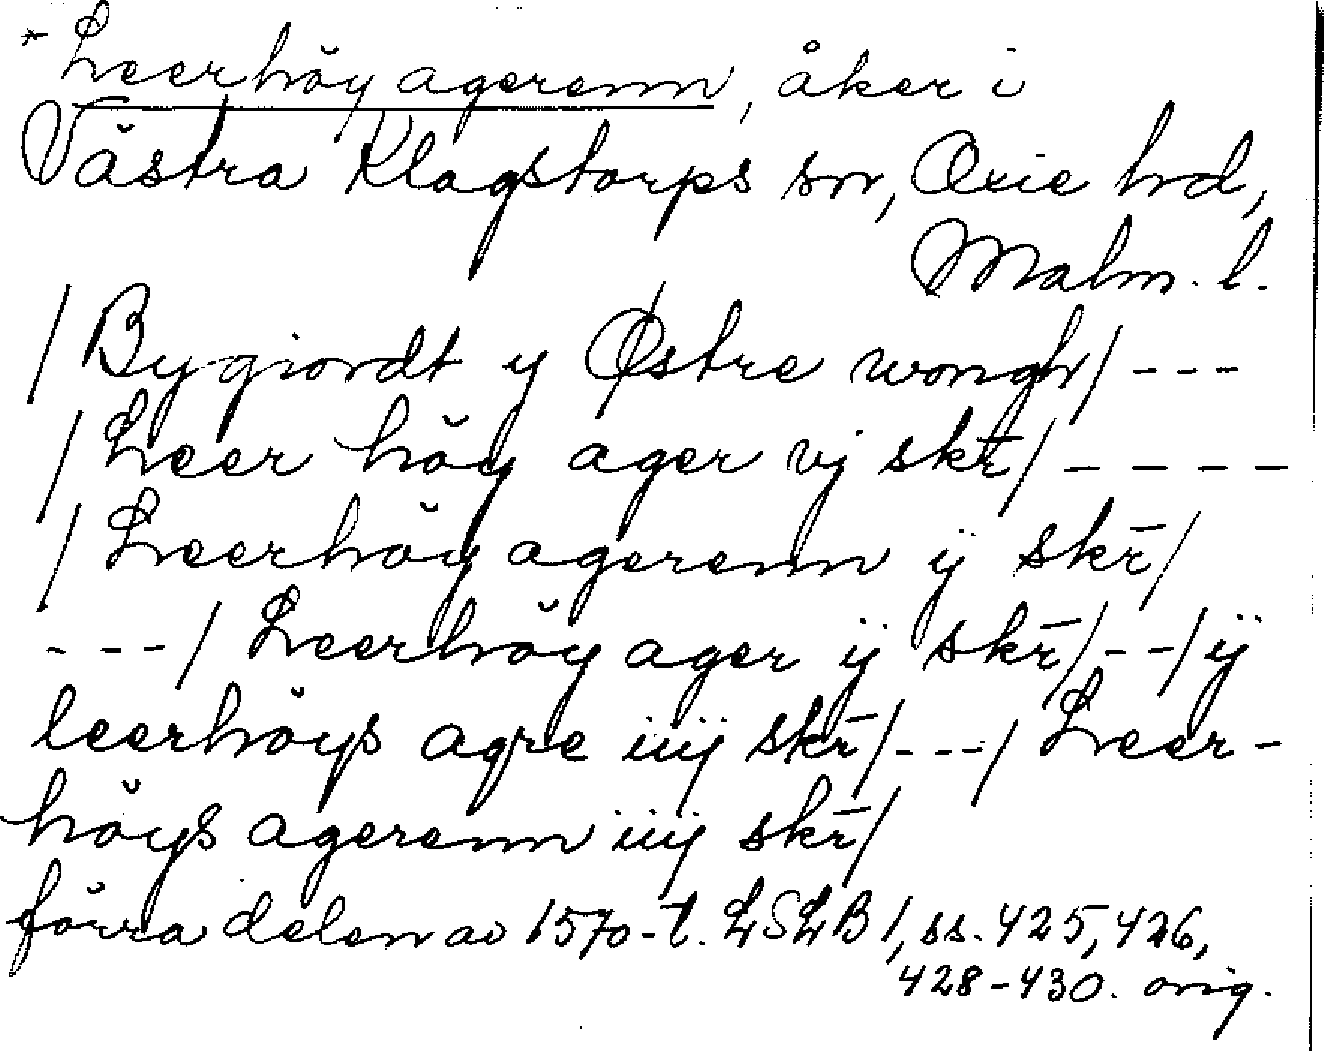 * Leerhöy agerenn, åker i
Västra Klagstorps sn, Oxie hd,
Malm. l.
/ Bygiordt y Østre wongh / ---
/ Leer höy ager vj skr̄ / ----
/ Leerhöy agerenn ij skr̄ /
--- / Leerhöy ager ij skr̄ / -- / ij
leerhöys agre iiij skr̄ / --- / Leer-
höys agerenn iiij skr̄ /
förra delen av 1570-t. LSLB 1, ss. 425, 426,
428-430. orig.